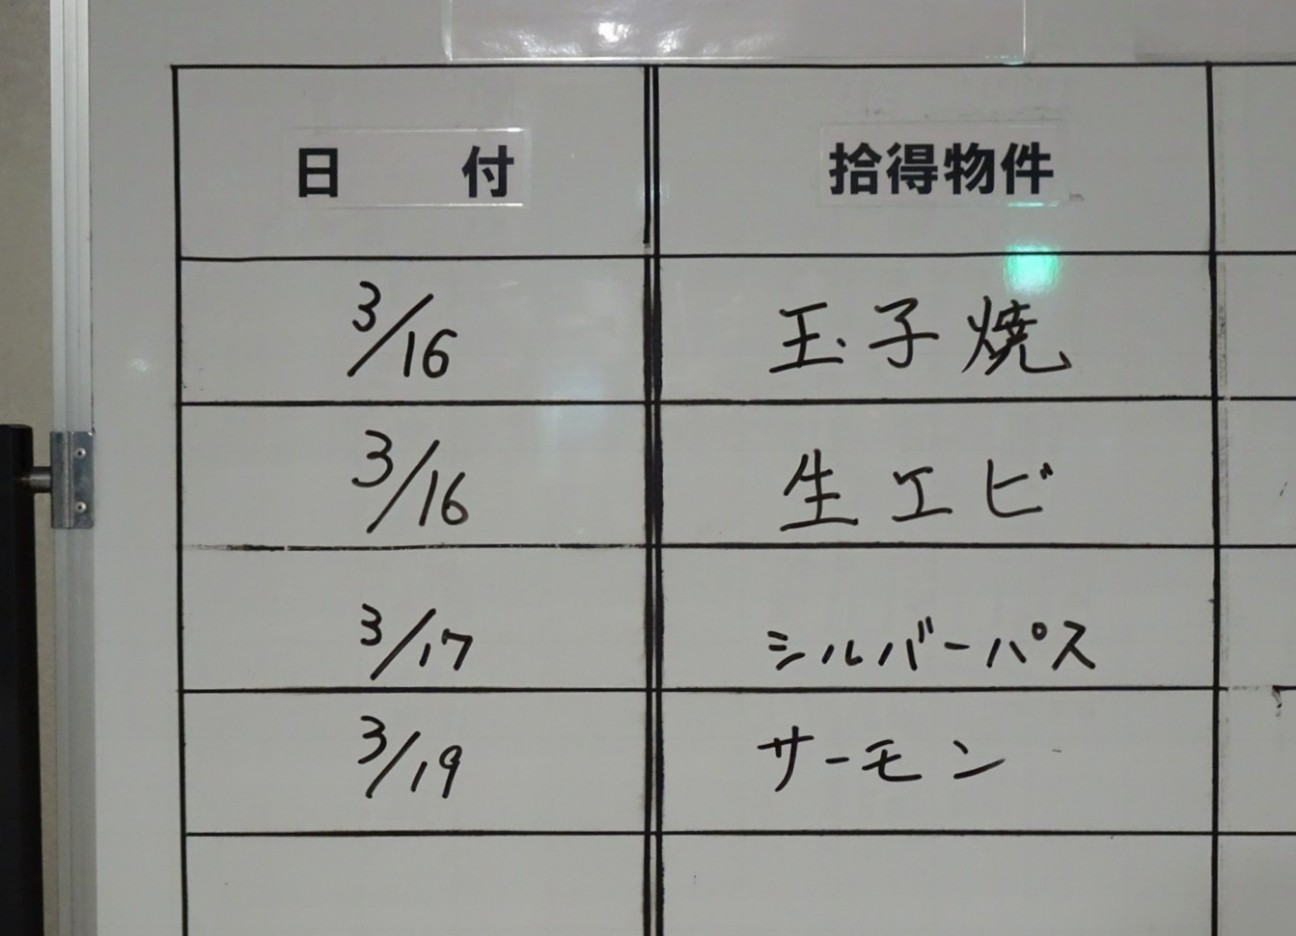 日 付 拾得物件
3/16 玉子焼
3/16 生エビ
3/17 シルバーパス
3/19 サーモン